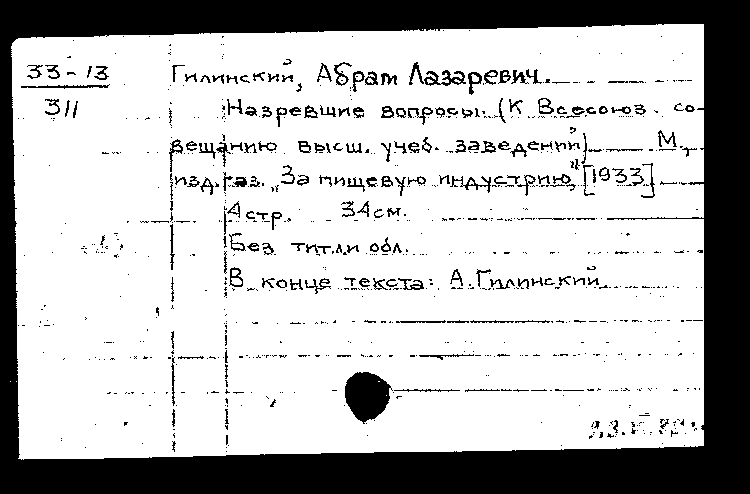 33-13
311
Гилинский, Абрам Лазаревич.
Назревшие вопросы. (К Всесоюз. со-
вещанию высш. учеб. заведений) М.,
изд. газ. „За пищевую индустрию“, [1933]
4 стр. 34 см.
Без тит. л и обл.
В конце текста: А. Гилинский